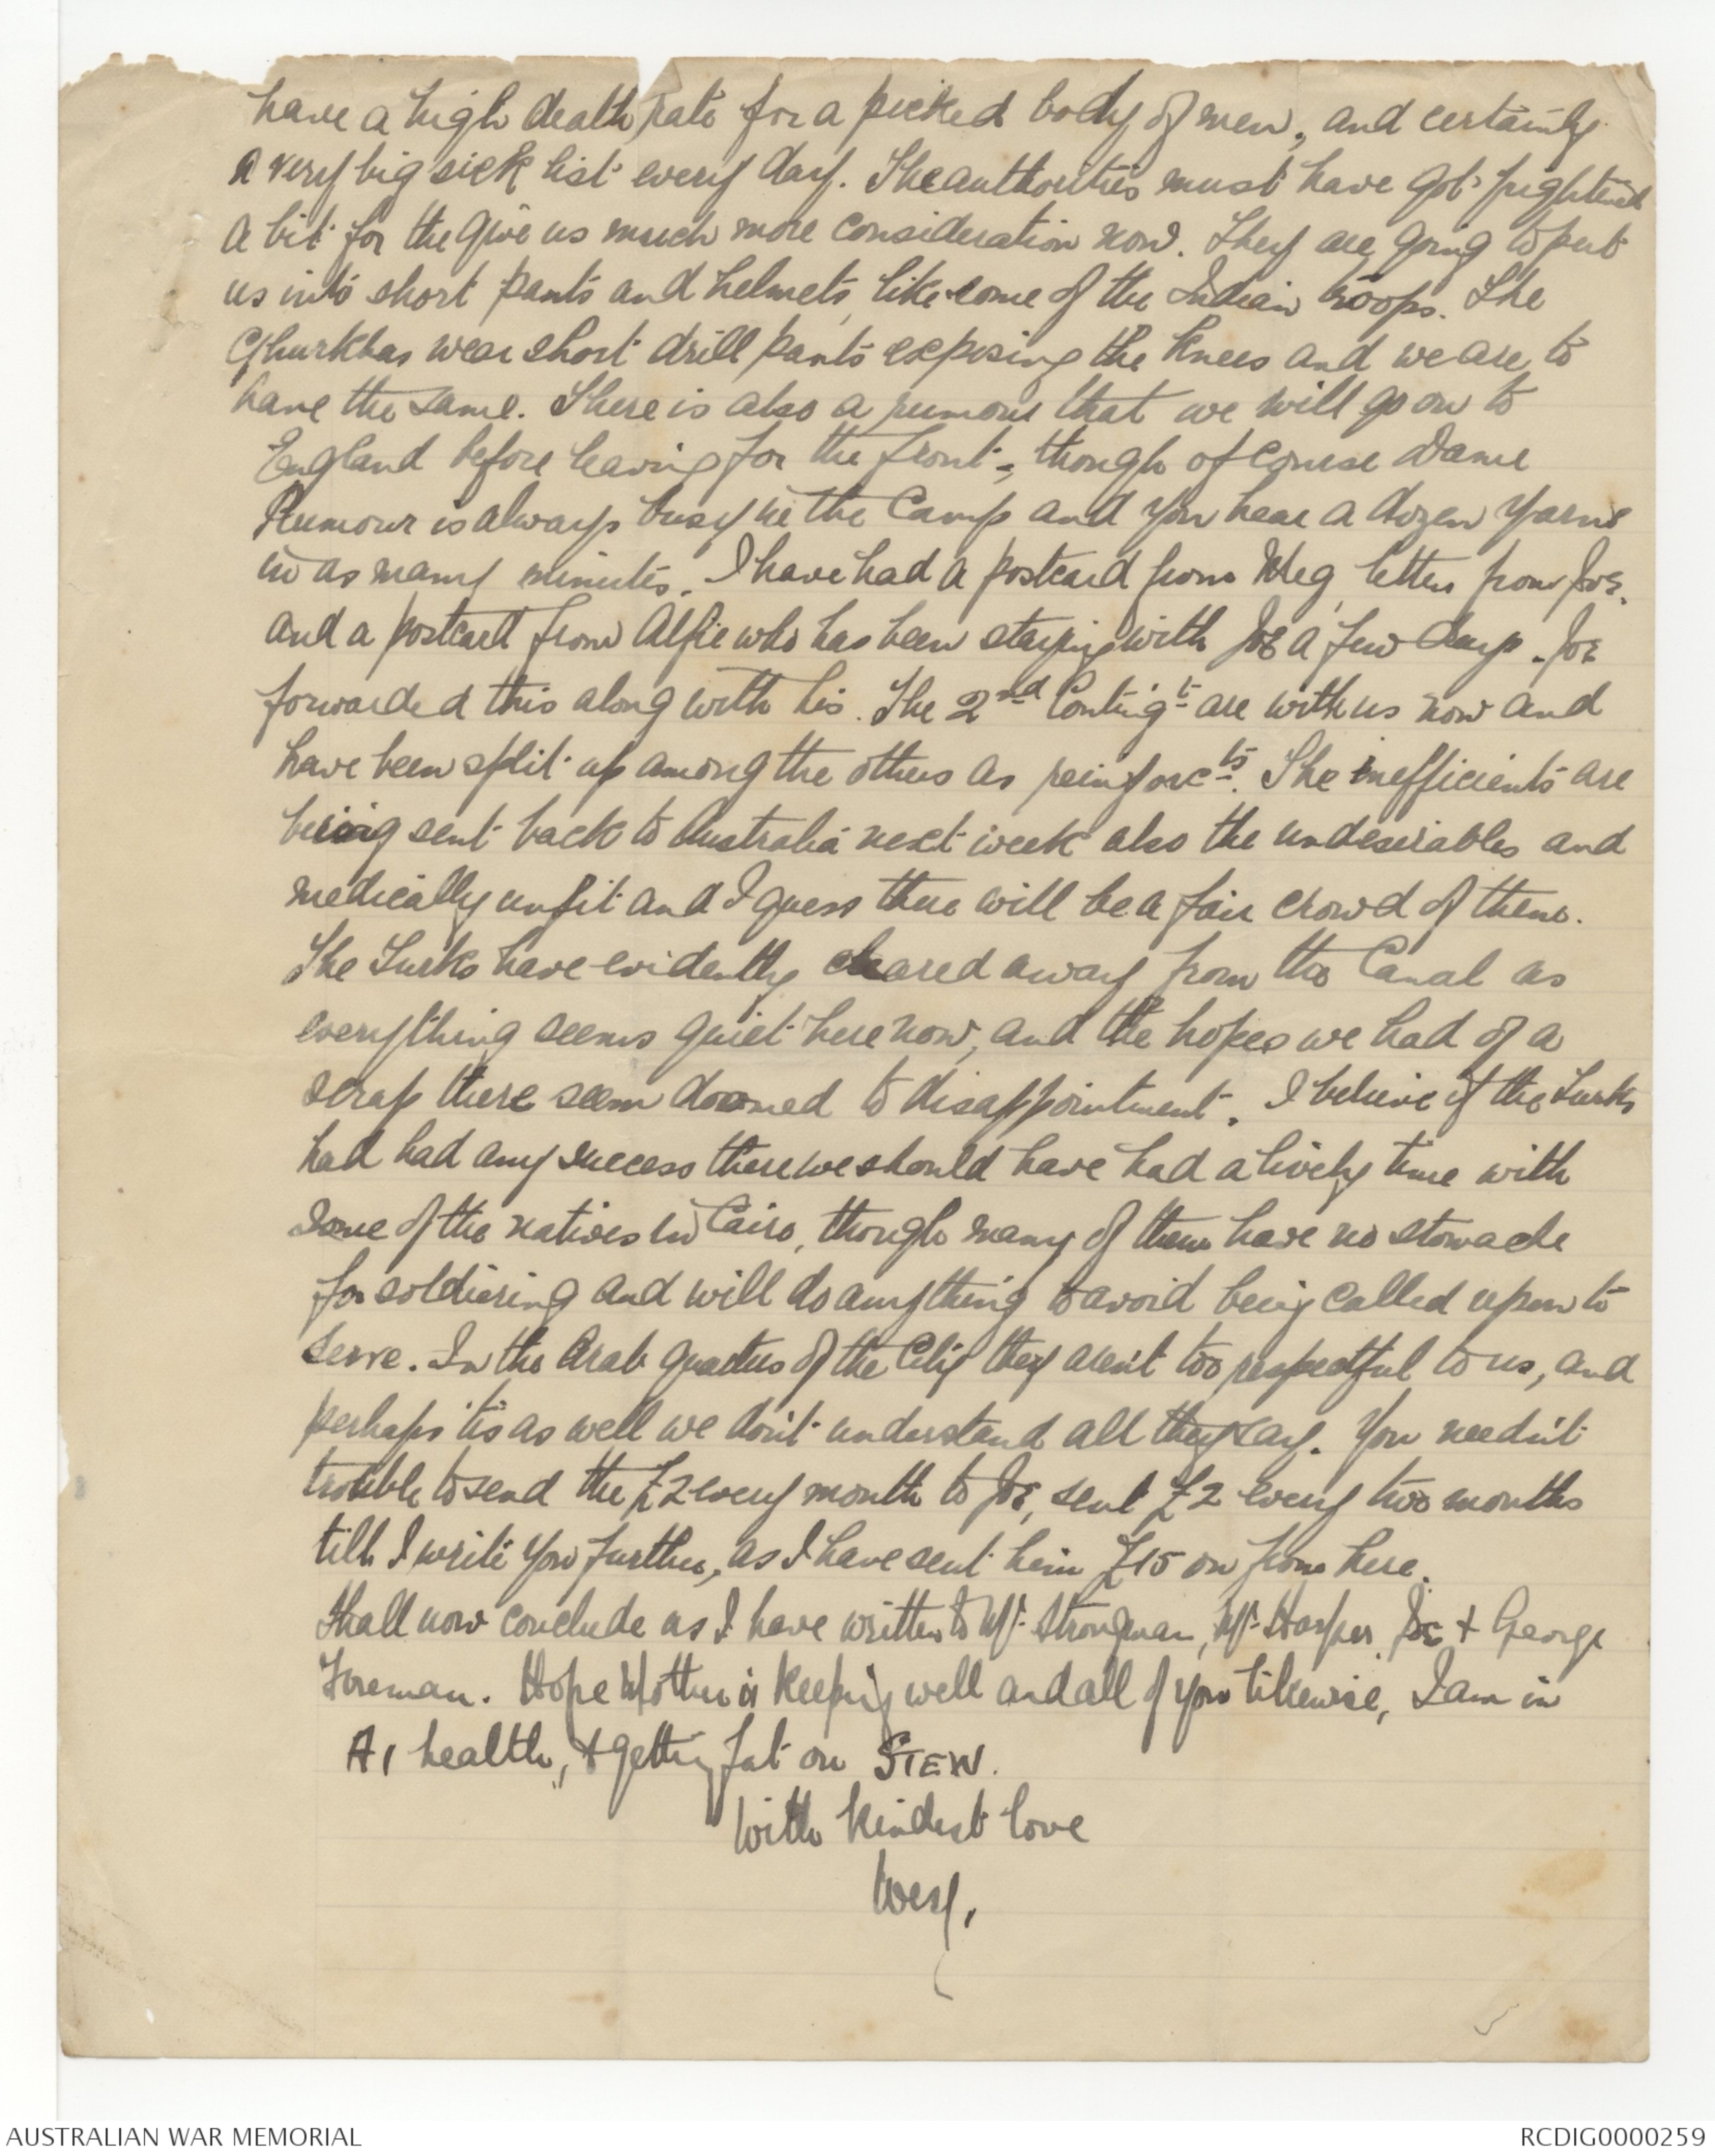 have a high death rate for a picked body of men, and certainly
a very big sick list every day. The authorities must have got frightened
a bit for the give us much more consideration now. They are going to put
us into short pants and helmets, like some of the Indian troops. The
Ghurkhas wear short drill pants exposing the knees and we are to
have the same. There is also a rumour that we will go on to
England before leaving for the front, though of course Dame
Rumour is always busy in the Camp and you hear a dozen yarns
in as many minutes. I have had a postcard from Meg, letter from Joe,
and a postcard from Alfie who has been staying with Joe a few days. Joe
forwarded this along with his. The 2nd Conting't are with us now and
have been split up among the others as reinforcts. The inefficients are
being sent back to Australia next week also the undesirables and
medically unfit and I guess there will be a fair crowd of them.
The Turks have evidently cleared away from the Canal as
everything seems quiet here now, and the hopes we had of a
scrap there seem doomed to disappointment. I believe if the Turks
had had any success there we should have had a lively time with
some of the natives in Cairo, though many of them have no stomache
for soldiering and will do anything to avoid being called upon to
serve. In the Arab quarters of the City they aren't too respectful to us, and
perhaps 'tis as well we don't understand all they say. You needn't
trouble to send the £2 every month to Joe, send £2 every two months
till I write you further, as I have sent him £15 on from here.
Shall now conclude as I have written to Mr. Strongman, Mr. Harper, Joe + George
Foreman. Hope Mother is keeping well and all of you likewise, I am in
A1 health, + getting fat on STEW.
With kindest love
Wesy,
AUSTRALIAN WAR MEMORIAL
RCDIG0000259